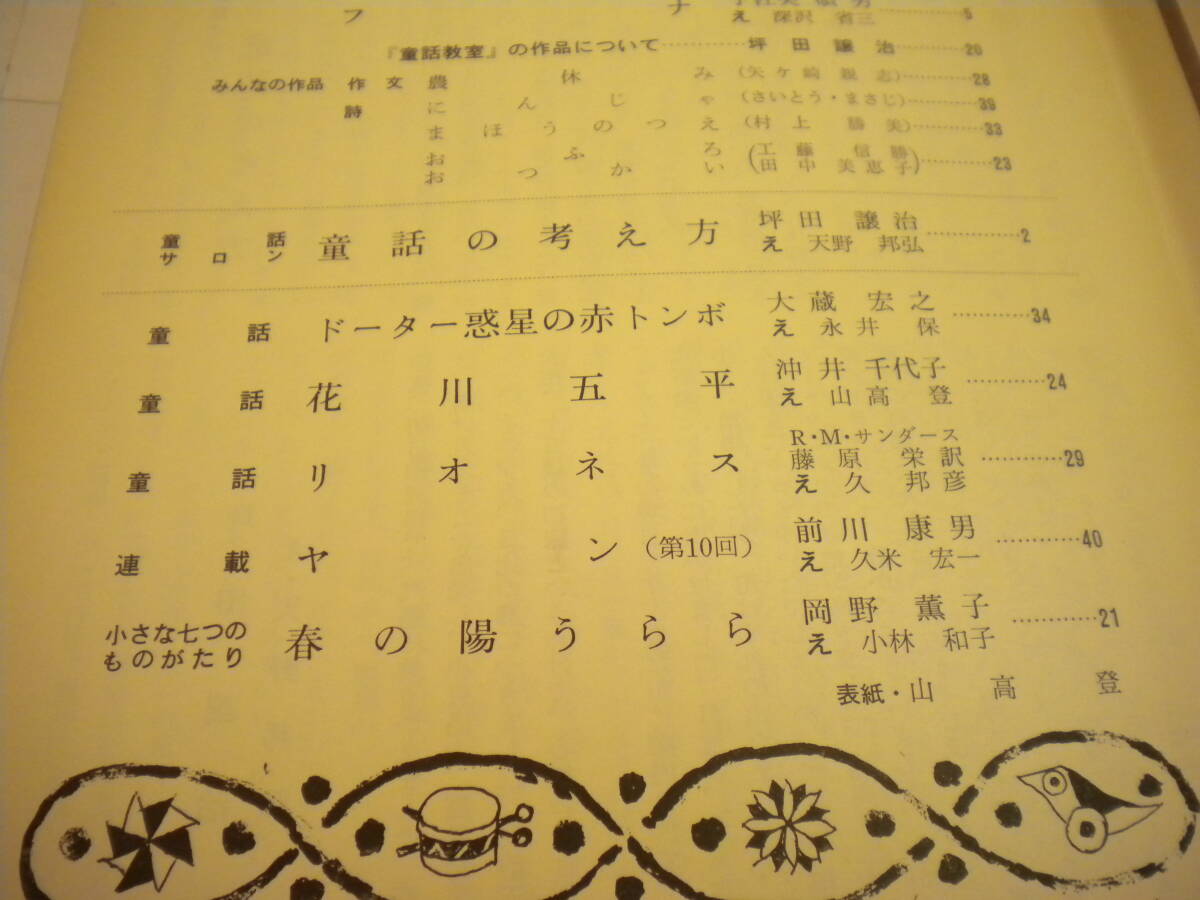 フナ
え 深沢 省三 5
『童話教室』の作品について 坪田譲治 20
みんなの作品 作文 農休み (矢ケ崎親志) 28
詩 にんじゃ (さいとう・まさじ) 39
まほうのつえ (村上勝美) 33
おふろ (工藤信勝)
おつかい (田中美恵子) 23
童話サロン 童話の考え方 坪田譲治 2
え 天野邦弘
童話 ドーター惑星の赤トンボ 大蔵宏之 34
え 永井保
童話 花川五平 沖井千代子 24
え 山高登
童話 リオネス R・M・サンダース
藤原栄訳 29
え 久邦彦
連載 ヤン (第10回) 前川康男 40
え 久米宏一
小さな七つのものがたり 春の陽うらら 岡野薫子 21
え 小林和子
表紙・山高登